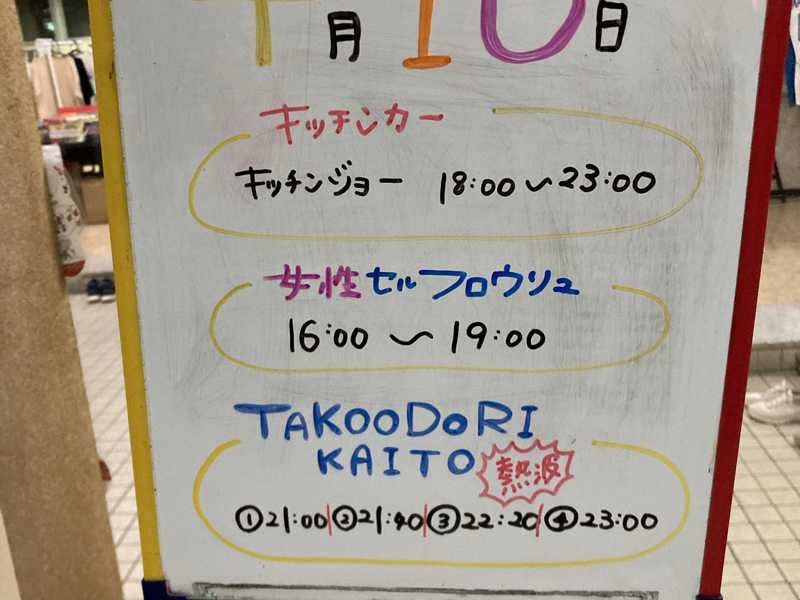 月10日
キッチンカー
キッチンジョー 18:00〜23:00
女性セルフロウリュ
16:00 〜 19:00
TAKOODORI
KAITO 熱波
①21:00|②21:40|③22:20|④23:00